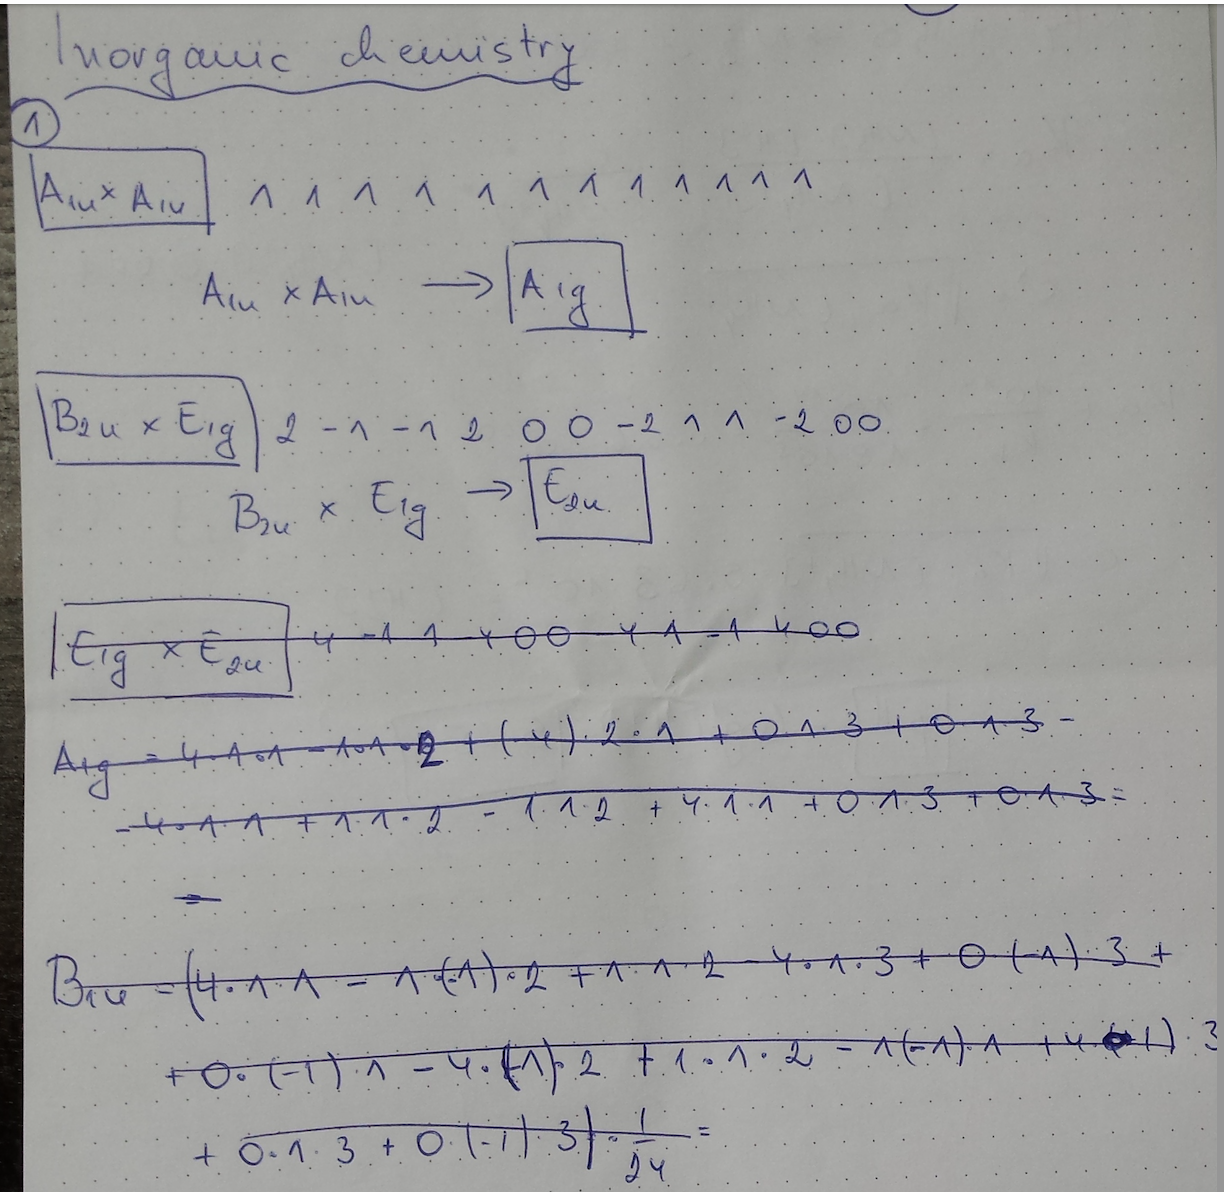 Inorganic chemistry
1
A1u x A1u 1 1 1 1 1 1 1 1 1 1 1 1
A1u x A1u → A1g
B2u x E1g 2 -1 -1 2 0 0 -2 1 1 -2 0 0
B2u x E1g → E2u
E1g x E2u 4 -1 1 -4 0 0 -4 1 -1 4 0 0
A1g = 4·1·1 - 1·1·2 + (-4)·2·1 + 0·1·3 + 0·1·3 -
- 4·1·1 + 1·1·2 - 1·1·2 + 4·1·1 + 0·1·3 + 0·1·3 =
=
B1u = (4·1·1 - 1·(-1)·2 + 1·1·2 - 4·1·3 + 0·(-1)·3 +
+ 0·(-1)·1 - 4·(-1)·2 + 1·1·2 - 1(-1)·1 + 4·(-1)·3
+ 0·1·3 + 0·(-1)·3)·1/24 =